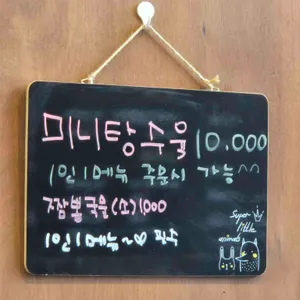 미니탕수육 10.000
1인 1메뉴 주문시 가능^^
짬뽕국물(소)1000
1인 1메뉴~♡ 필수
Super
little
animals